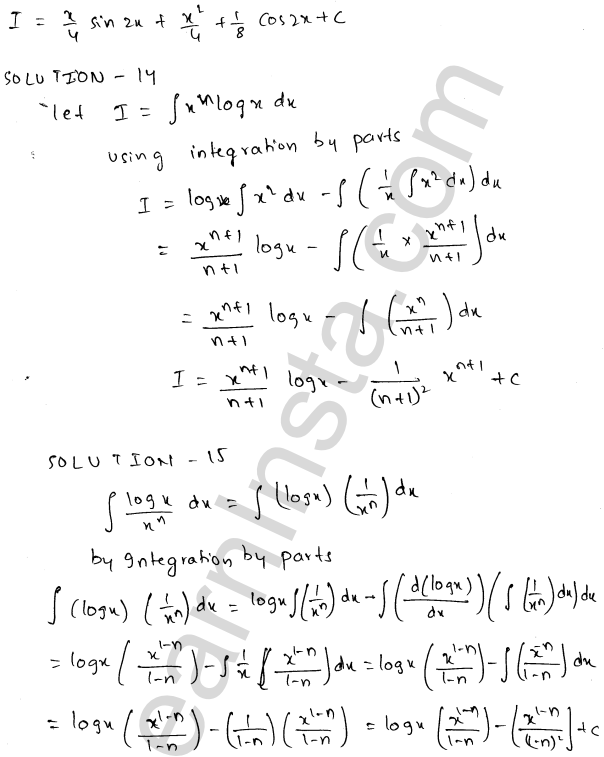 I = x/4 sin 2x + x²/4 + 1/8 cos 2x + C
SOLUTION - 14
let I = ∫ xⁿ log x dx
using integration by parts
I = log x ∫ x² dx - ∫ (1/x ∫ x² dx) dx
= xⁿ⁺¹/(n+1) log x - ∫ (1/x × xⁿ⁺¹/(n+1)) dx
= xⁿ⁺¹/(n+1) log x - ∫ (xⁿ/(n+1)) dx
I = xⁿ⁺¹/(n+1) log x - 1/(n+1)² xⁿ⁺¹ + C
SOLUTION - 15
∫ log x/xⁿ dx = ∫ (log x) (1/xⁿ) dx
by Integration by parts
∫ (log x) (1/xⁿ) dx = log x ∫ (1/xⁿ) dx - ∫ (d(log x)/dx) (∫ (1/xⁿ) dx) dx
= log x (x¹⁻ⁿ/(1-n)) - ∫ 1/x (x¹⁻ⁿ/(1-n)) dx = log x (x¹⁻ⁿ/(1-n)) - ∫ (x⁻ⁿ/(1-n)) dx
= log x (x¹⁻ⁿ/(1-n)) - (1/(1-n)) (x¹⁻ⁿ/(1-n)) = log x (x¹⁻ⁿ/(1-n)) - (x¹⁻ⁿ/(1-n)²) + C
earninsta.com